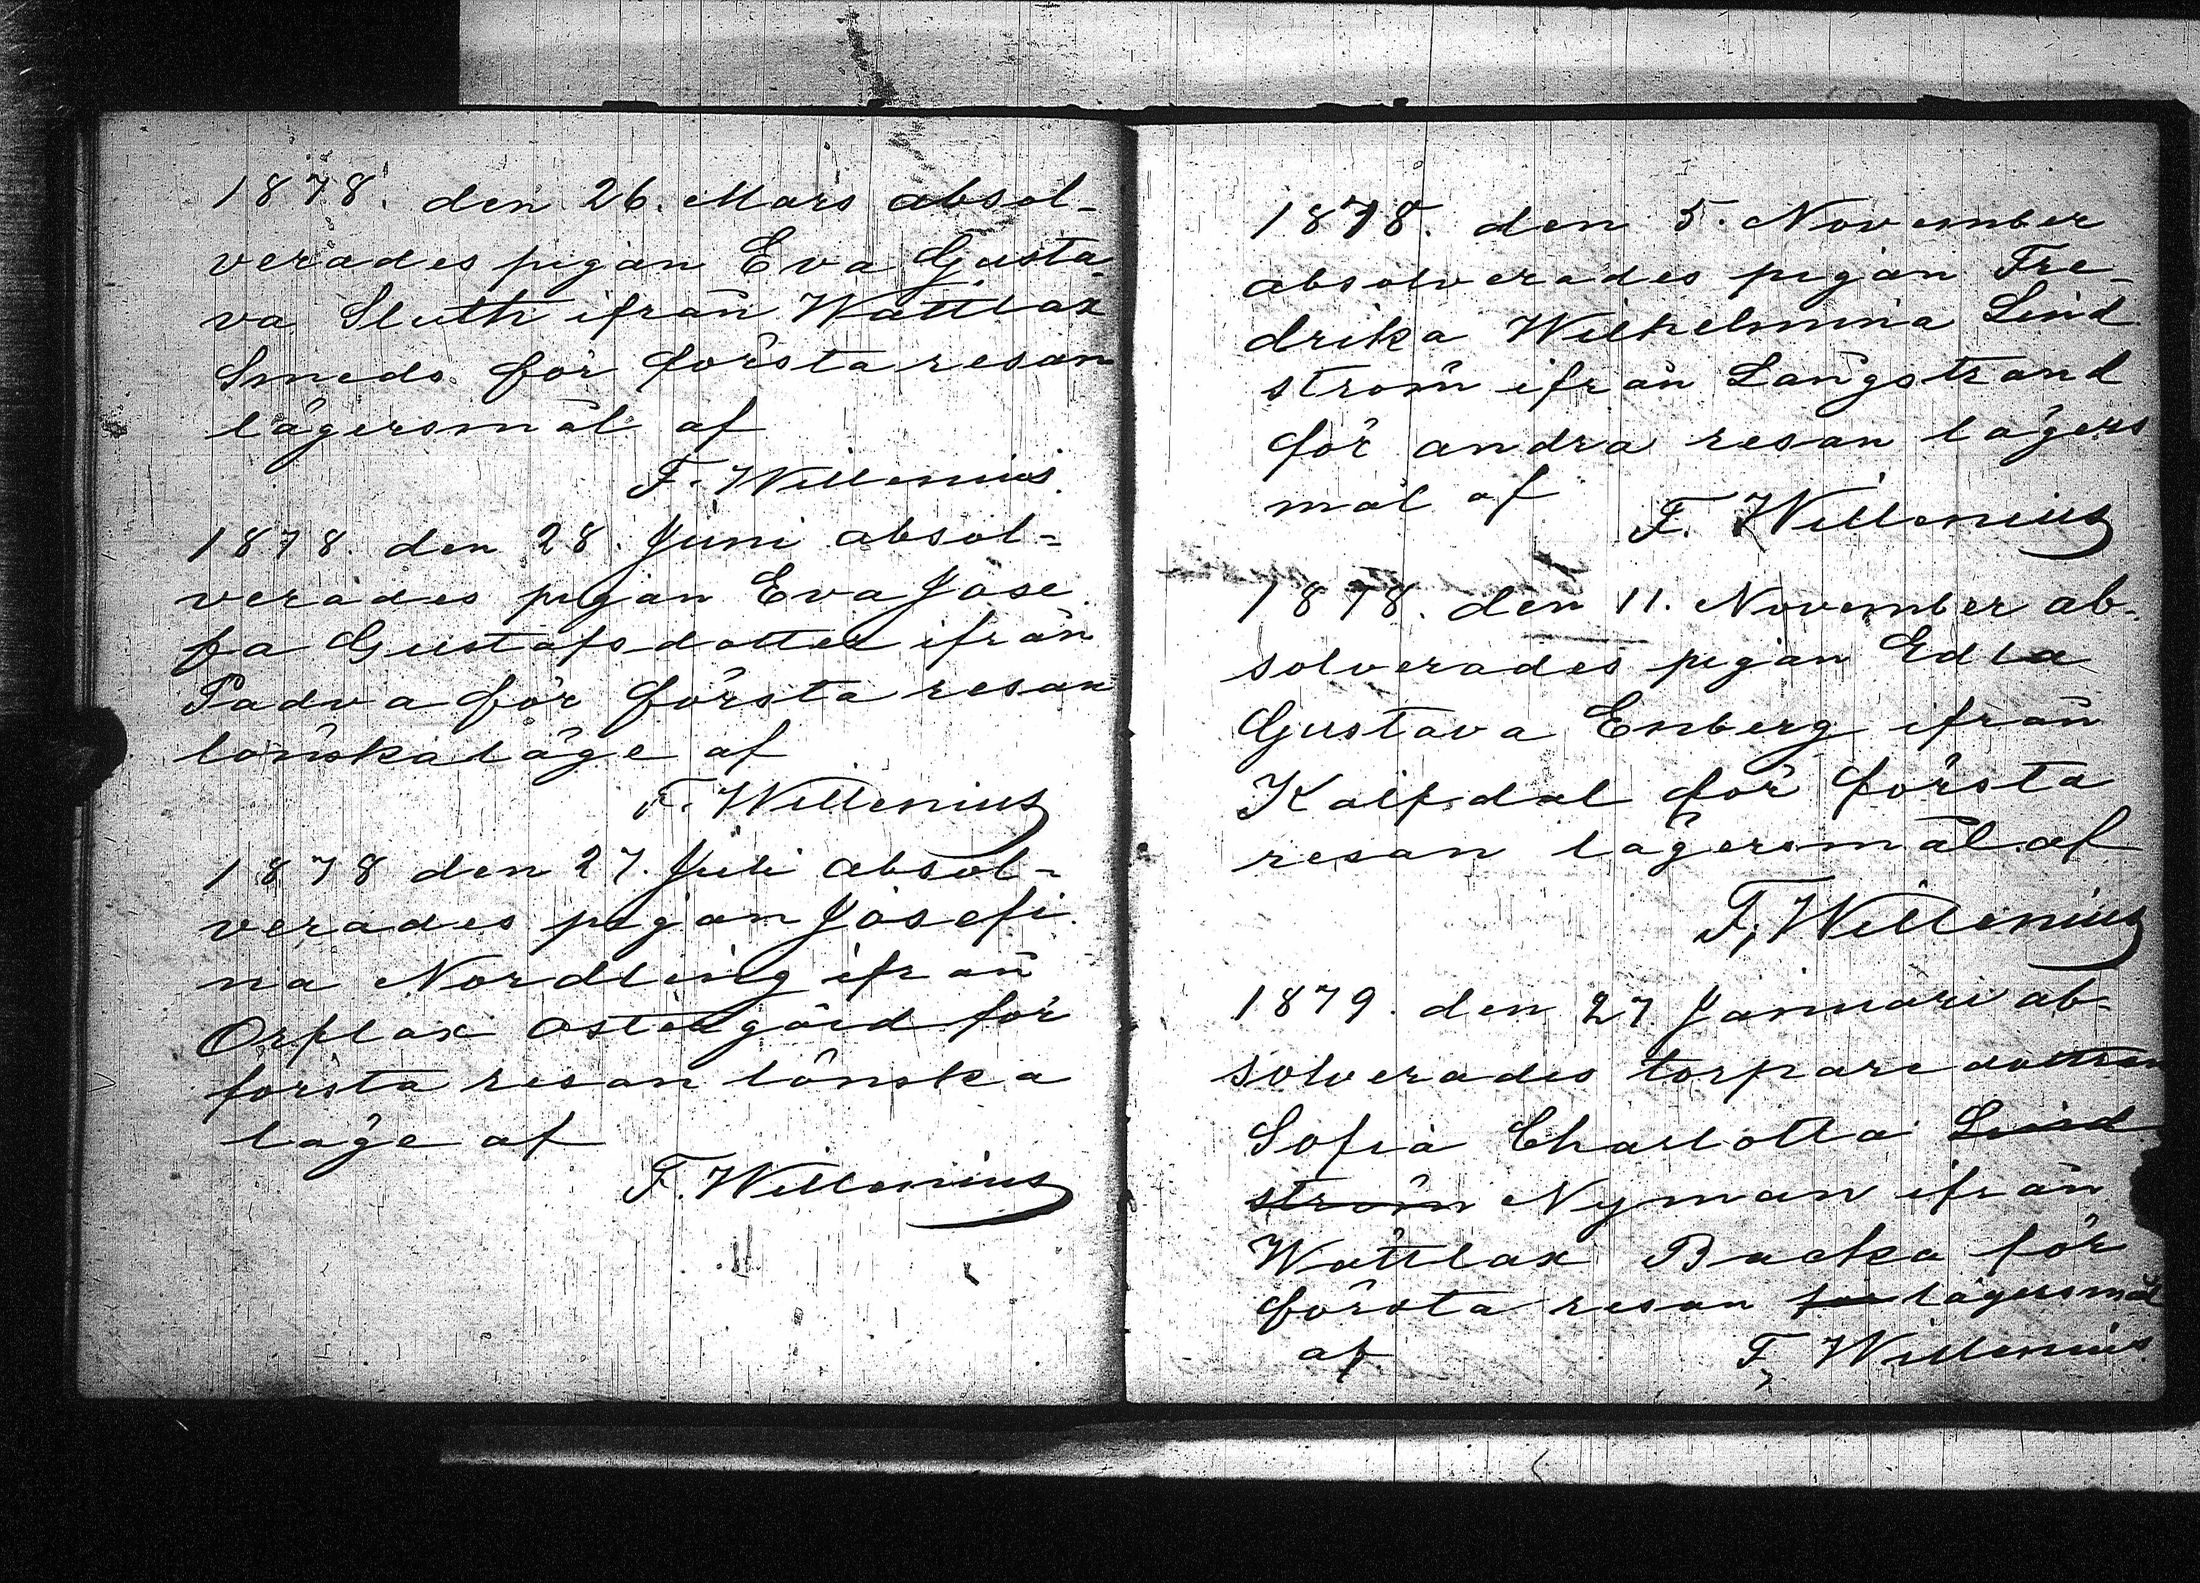 1878. den 26. Mars absol-
verades pigan Eva Gusta-
va Sluth ifrån Wättlax
Smeds för första resan
lägersmål af
F. Willenius.
1878. den 28. Juni absol-
verades pigan Eva Jose
fa Gustafsdotter ifrån
Padva för första resan
lönskaläge af
F. Willenius
1878 den 27. Juli absol-
verades pigan Josefi-
na Nordling ifrån
Orflax östergård för
första resan lönska
läge af
F. Willenius
1878. den 5. November
absolverades pigan Fre-
drika Wilhelmina Lind
ström ifrån Långstrand
för andra resan lägers
mål af
F. Willenius
1878. den 11. November ab-
solverades pigan Edla
Gustava Enberg ifrån
Kalfdal för första
resan lägersmål af
F. Willenius
1879. den 27 Januari ab-
solverades torparedottran
Sofia Charlotta Lind
ström Nyman ifrån
Wättlax Backa för
första resan för lägersmål
af
F. Willenius